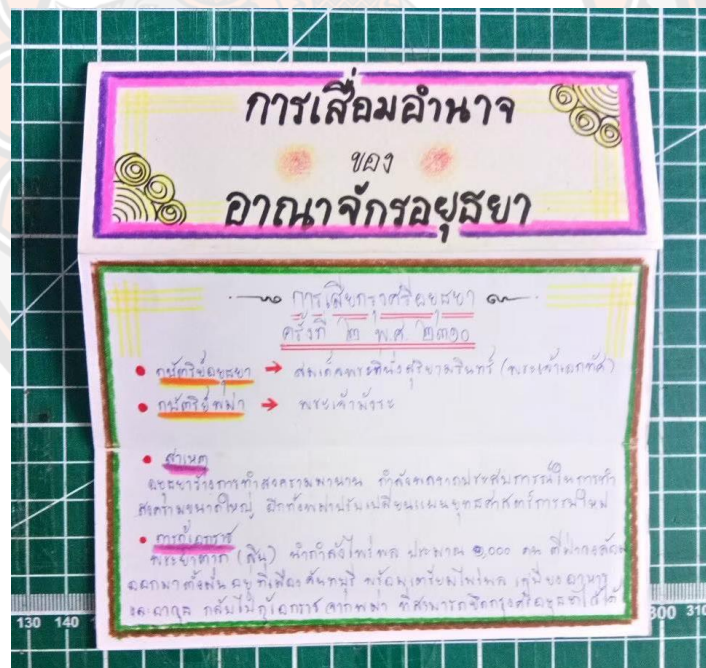 การเสื่อมอำนาจ
ของ
อาณาจักรอยุธยา
การเสียกรุงศรีอยุธยา
ครั้งที่ ๒ พ.ศ. ๒๓๑๐
กษัตริย์อยุธยา → สมเด็จพระที่นั่งสุริยามรินทร์ (พระเจ้าเอกทัศ)
กษัตริย์พม่า → พระเจ้ามังระ
สาเหตุ
อยุธยาว่างการทำสงครามมานาน กำลังพลขาดประสบการณ์ในการทำ
สงครามขนาดใหญ่ อีกทั้งพม่าปรับเปลี่ยนแผนยุทธศาสตร์การรบใหม่
การกู้เอกราช
พระยาตาก (สิน) นำกำลังไพร่พล ประมาณ ๑,๐๐๐ คน ตีฝ่าวงล้อม
ออกมาตั้งมั่น อยู่ที่เมืองจันทบุรี พร้อมเตรียมไพร่พล เสบียงอาหาร
และอาวุธ กลับไปกู้เอกราช จากพม่า ที่สามารถยึดกรุงศรีอยุธยาไว้ได้
130 140
300 310